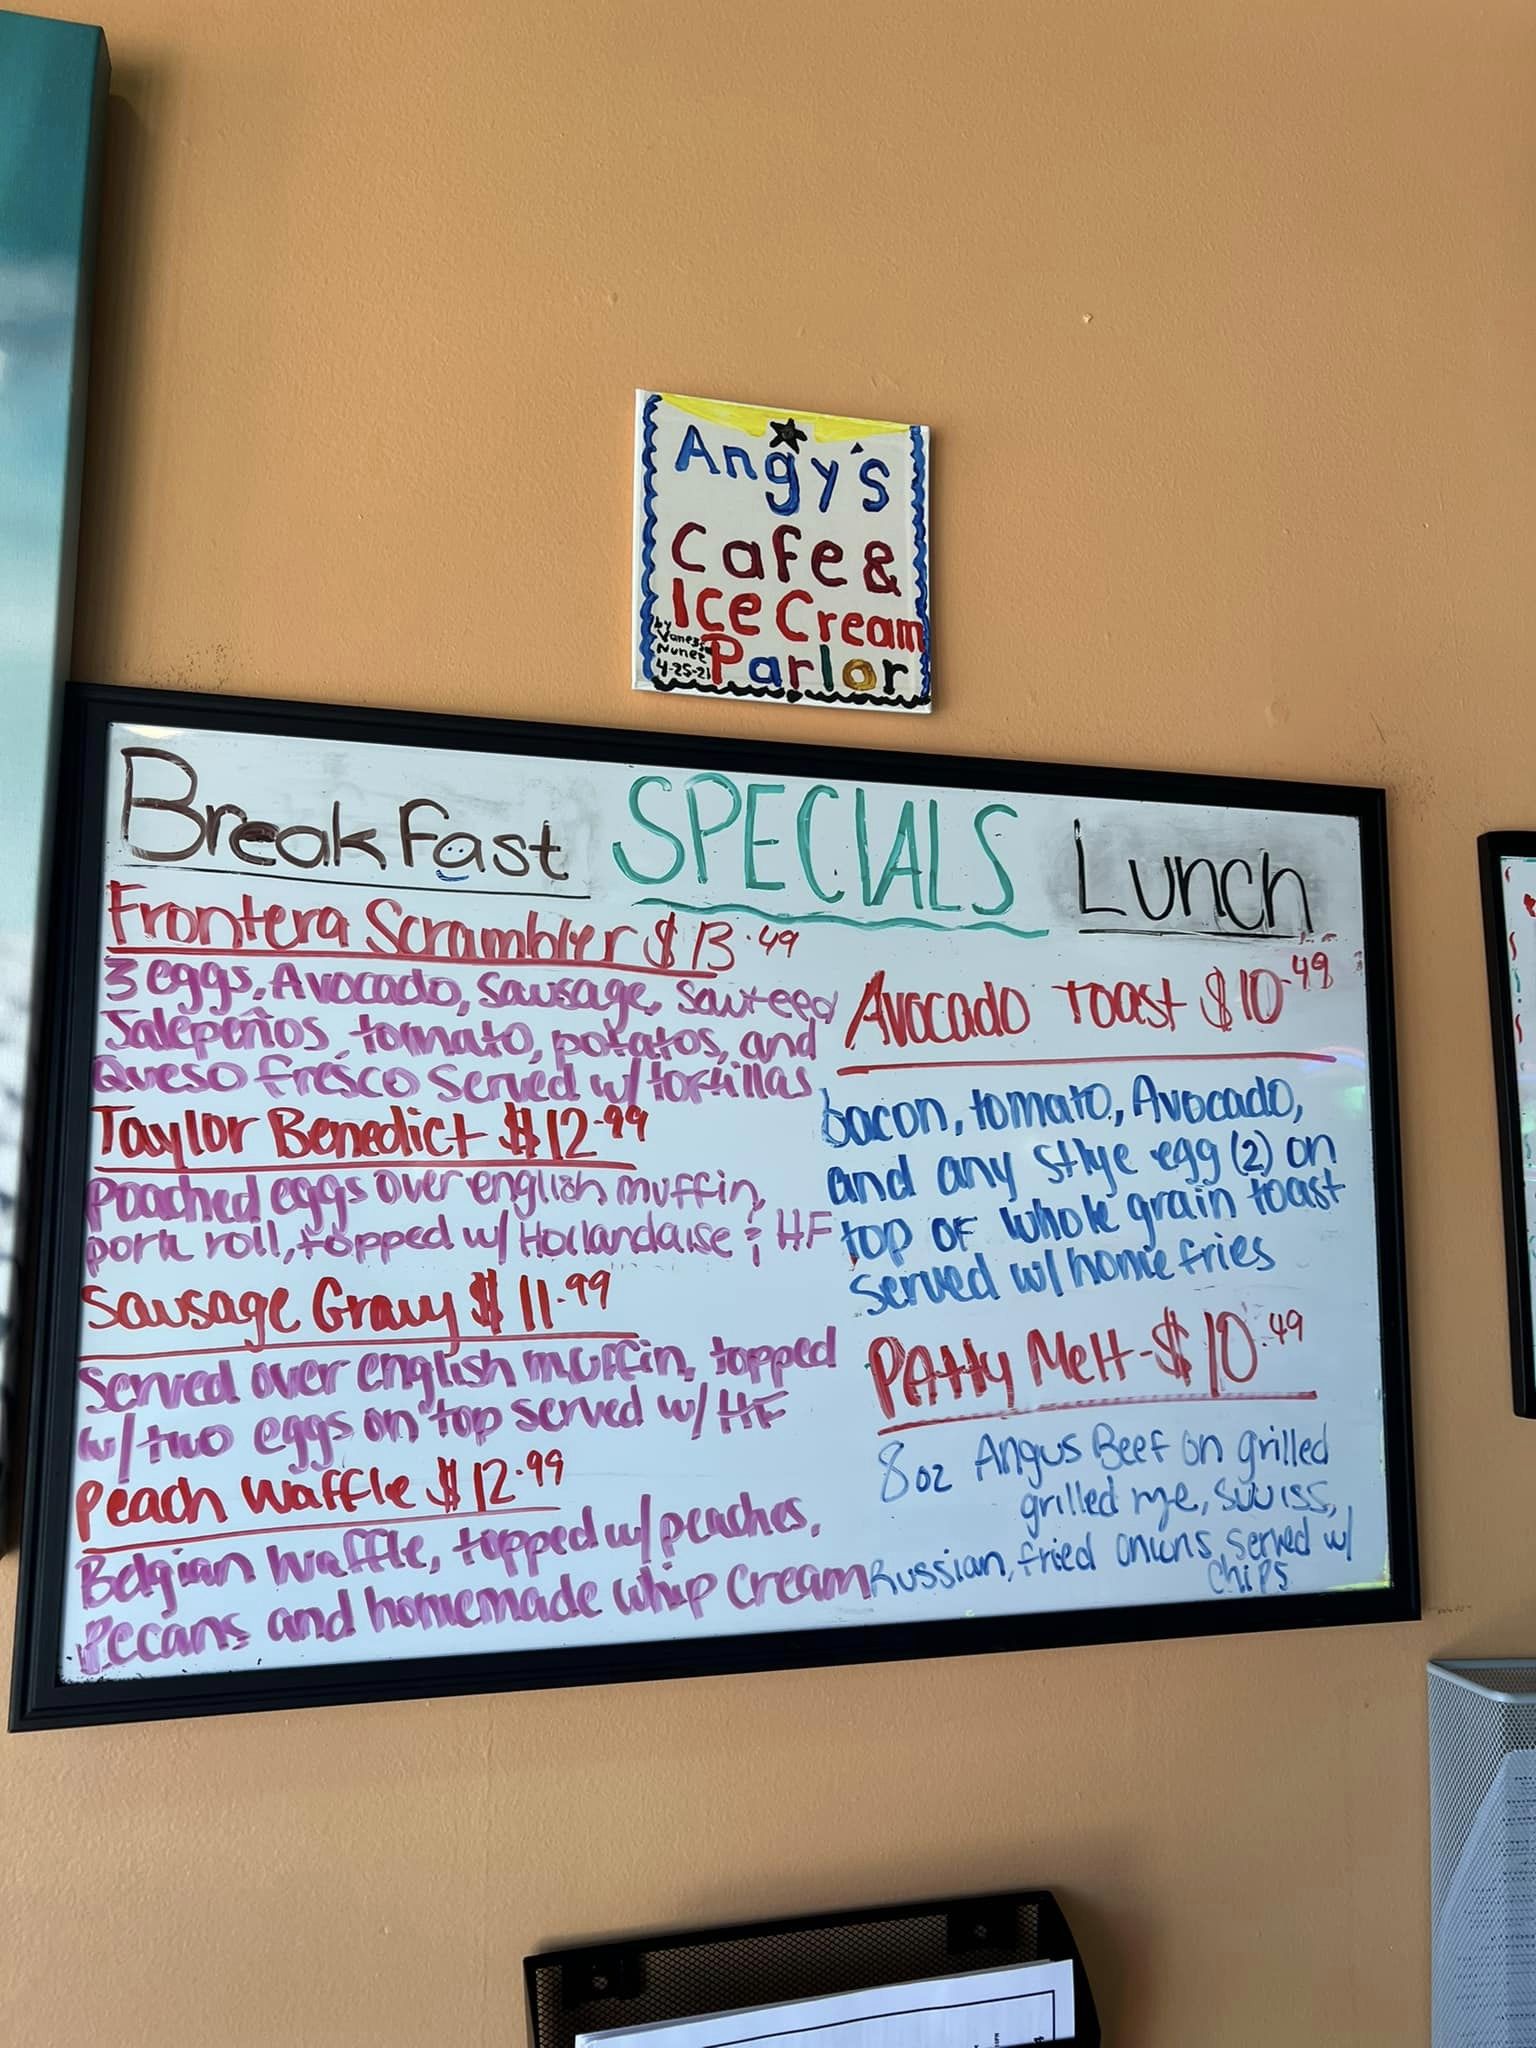 Angy's
Cafe &
Ice Cream
Parlor
by
Vanessa
Nunez
4-25-21
Breakfast SPECIALS Lunch
Frontera Scrambler $13.49
3 eggs, Avocado, Sausage, Sauteed
Jalepeños, tomato, potatos, and
Queso fresco served w/ tortillas
Taylor Benedict $12.99
Poached eggs over english muffin,
pork roll, topped w/ Hollandaise & HF
Sausage Gravy $11.99
Served over english muffin, topped
w/ two eggs on top served w/ HF
Peach Waffle $12.99
Belgian Waffle, topped w/ peaches,
Pecans and homemade whip cream
Avocado Toast $10.49
bacon, tomato, Avocado,
and any stlye egg (2) on
top of whole grain toast
served w/ home fries
PAtty Melt - $10.49
8oz Angus Beef on grilled
grilled rye, swiss,
Russian, fried onions, served w/
chips